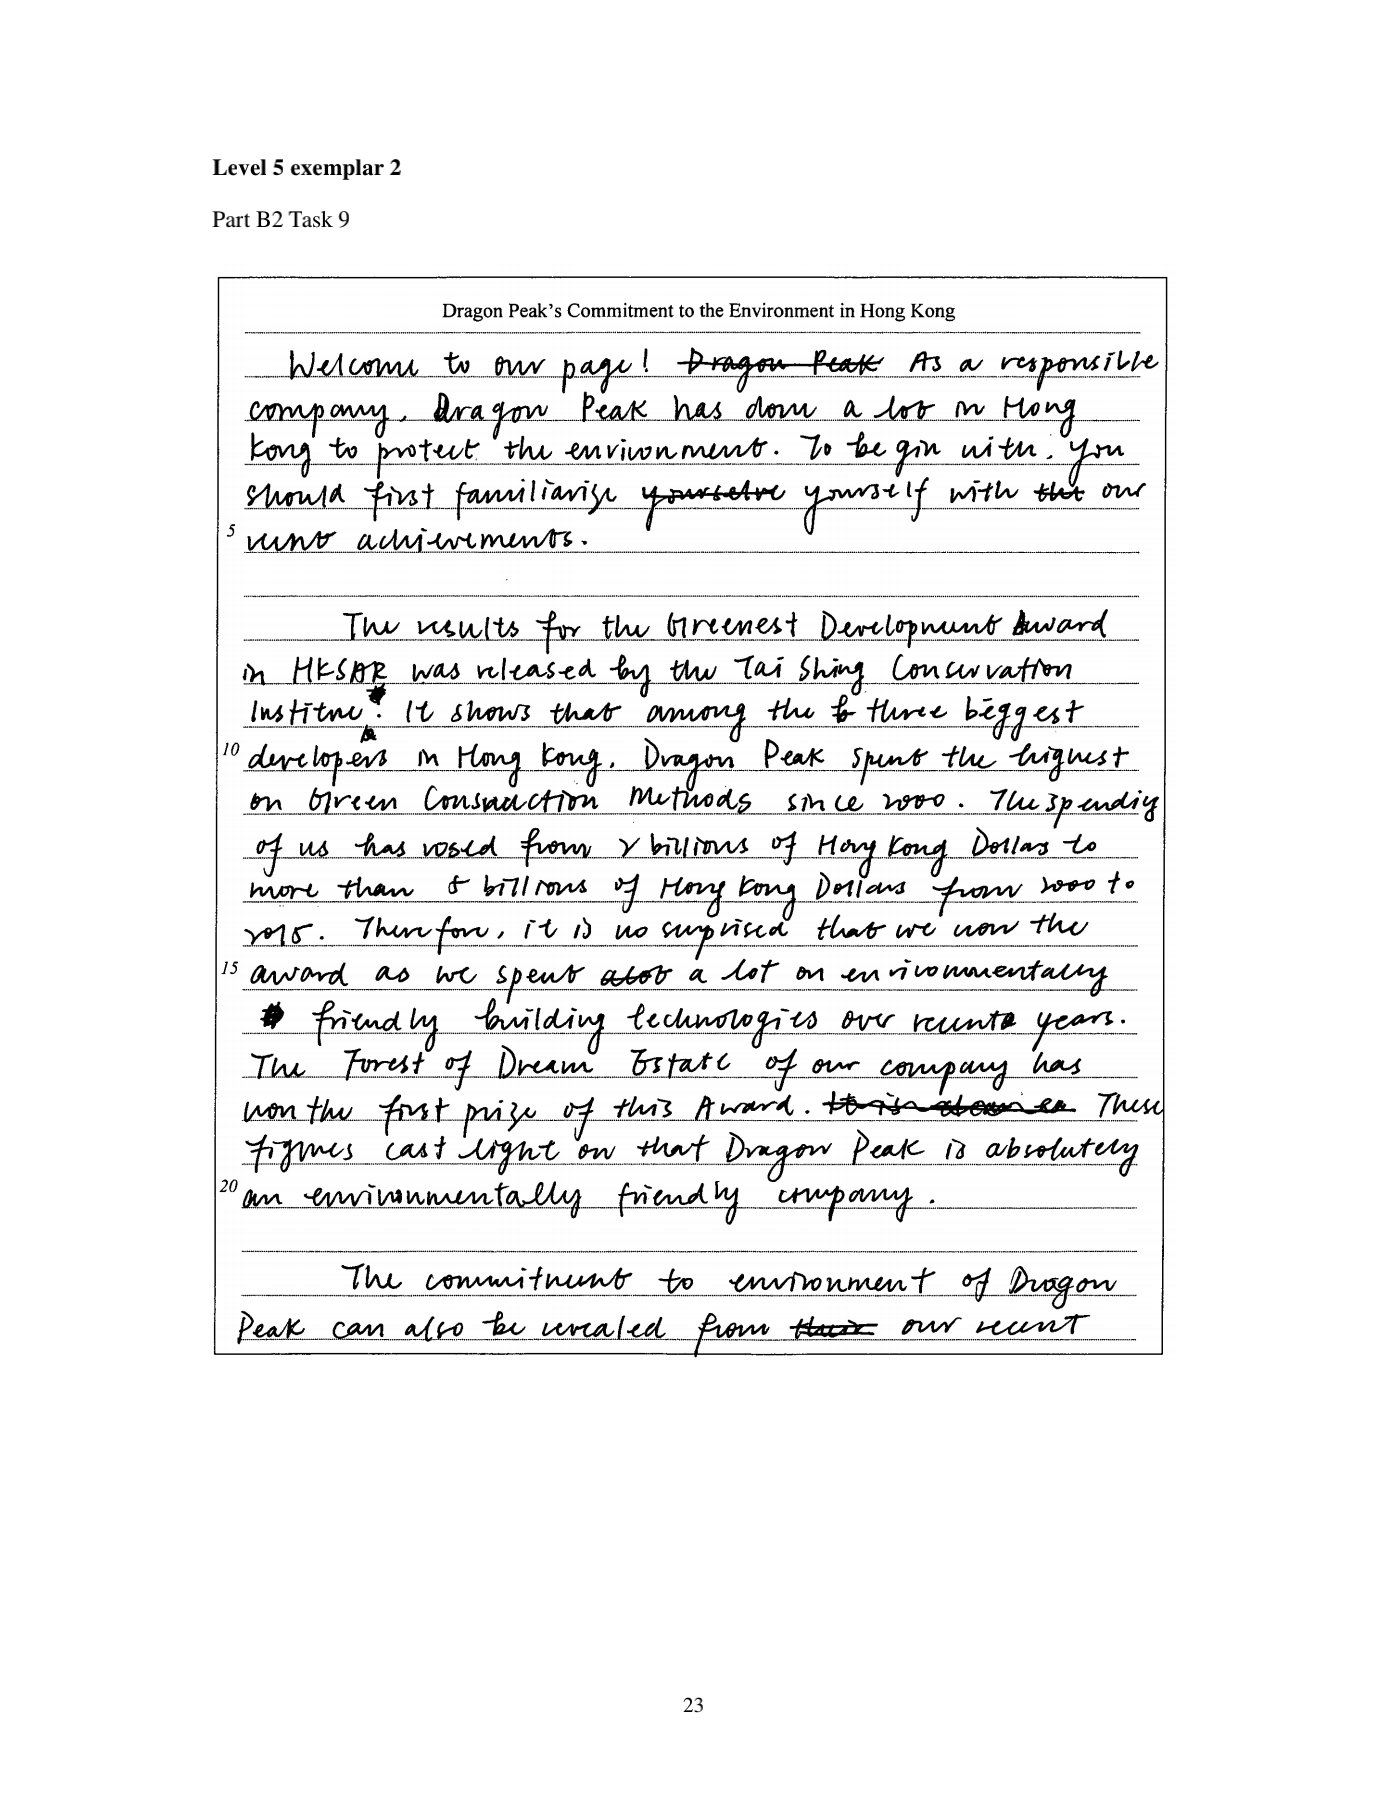 Level 5 exemplar 2
Part B2 Task 9
Dragon Peak's Commitment to the Environment in Hong Kong
Welcome to our page! Dragon Peak As a responsible
company, Dragon Peak has done a lot in Hong
Kong to protect the environment. To begin with, you
should first familiarise yourselve yourself with the our
5 recent achievements.
The results for the Greenest Development Award
in HKSAR was released by the Tai Shing Conservation
Institue. It shows that among the b three biggest
10 developers in Hong Kong, Dragon Peak spent the highest
on Green Consruction Methods since 2000. The spending
of us has rosed from 2 billions of Hong Kong Dollars to
more than 5 billions of Hong Kong Dollars from 2000 to
2015. Therefore, it is no surprised that we won the
15 award as we spent alot a lot on environmentally
friendly building technologies over recent years.
The Forest of Dream Estate of our company has
won the first prize of this Award. It is These
figures cast light on that Dragon Peak is absolutely
20 an environmentally friendly company.
The commitment to environment of Dragon
Peak can also be revealed from their our recent
23